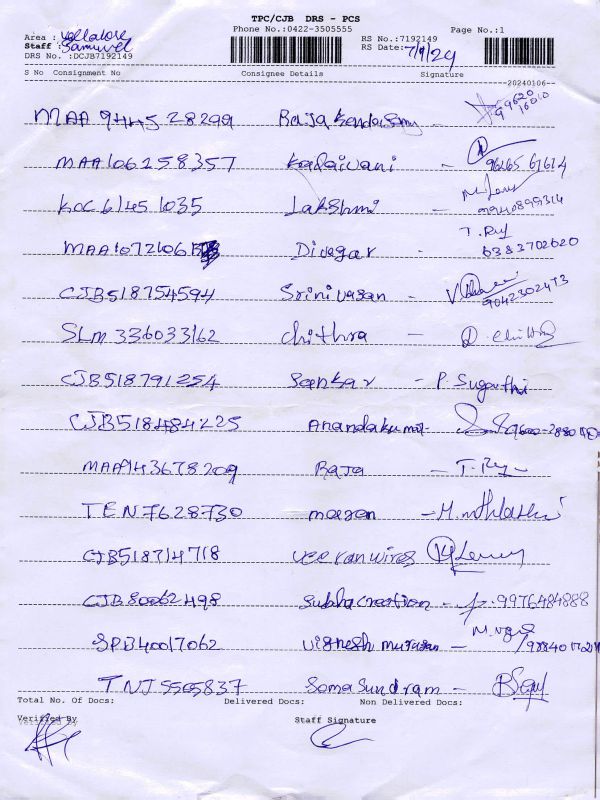 TPC/CJB DRS - PCS
Phone No.:0422-3505555 Page No.:1
Area : Vellalore RS No.:7192149
Staff : Samuvel RS Date: 7/9/24
DRS No. :DCJB7192149
S No Consignment No Consignee Details Signature
20240106
MAA 944528299 Raja Kandasamy - 99620 16010
MAA106258357 Kadaivani - 96265 61614
KOC61451035 Lakshmi 9940899314
MAA10721061 Divagar - T. Raj 6383702620
CJB518754594 Srinivasan - 9042302473
SLM 336033162 Chithra - D. Chithra
CJB518791254 Sankar - P. Sugantha
CJB518484225 Anandakumar -
MAA943678209 Raja - T. Raj
TEN7628730 maran -
CJB518714718 veeranwires
CJB80062498 Subhacreation - 9976484888
SPB40017062 Vignesh murugan -
TNJ5505837 Somasundram -
Total No. Of Docs: Delivered Docs: Non Delivered Docs:
Verified By Staff Signature